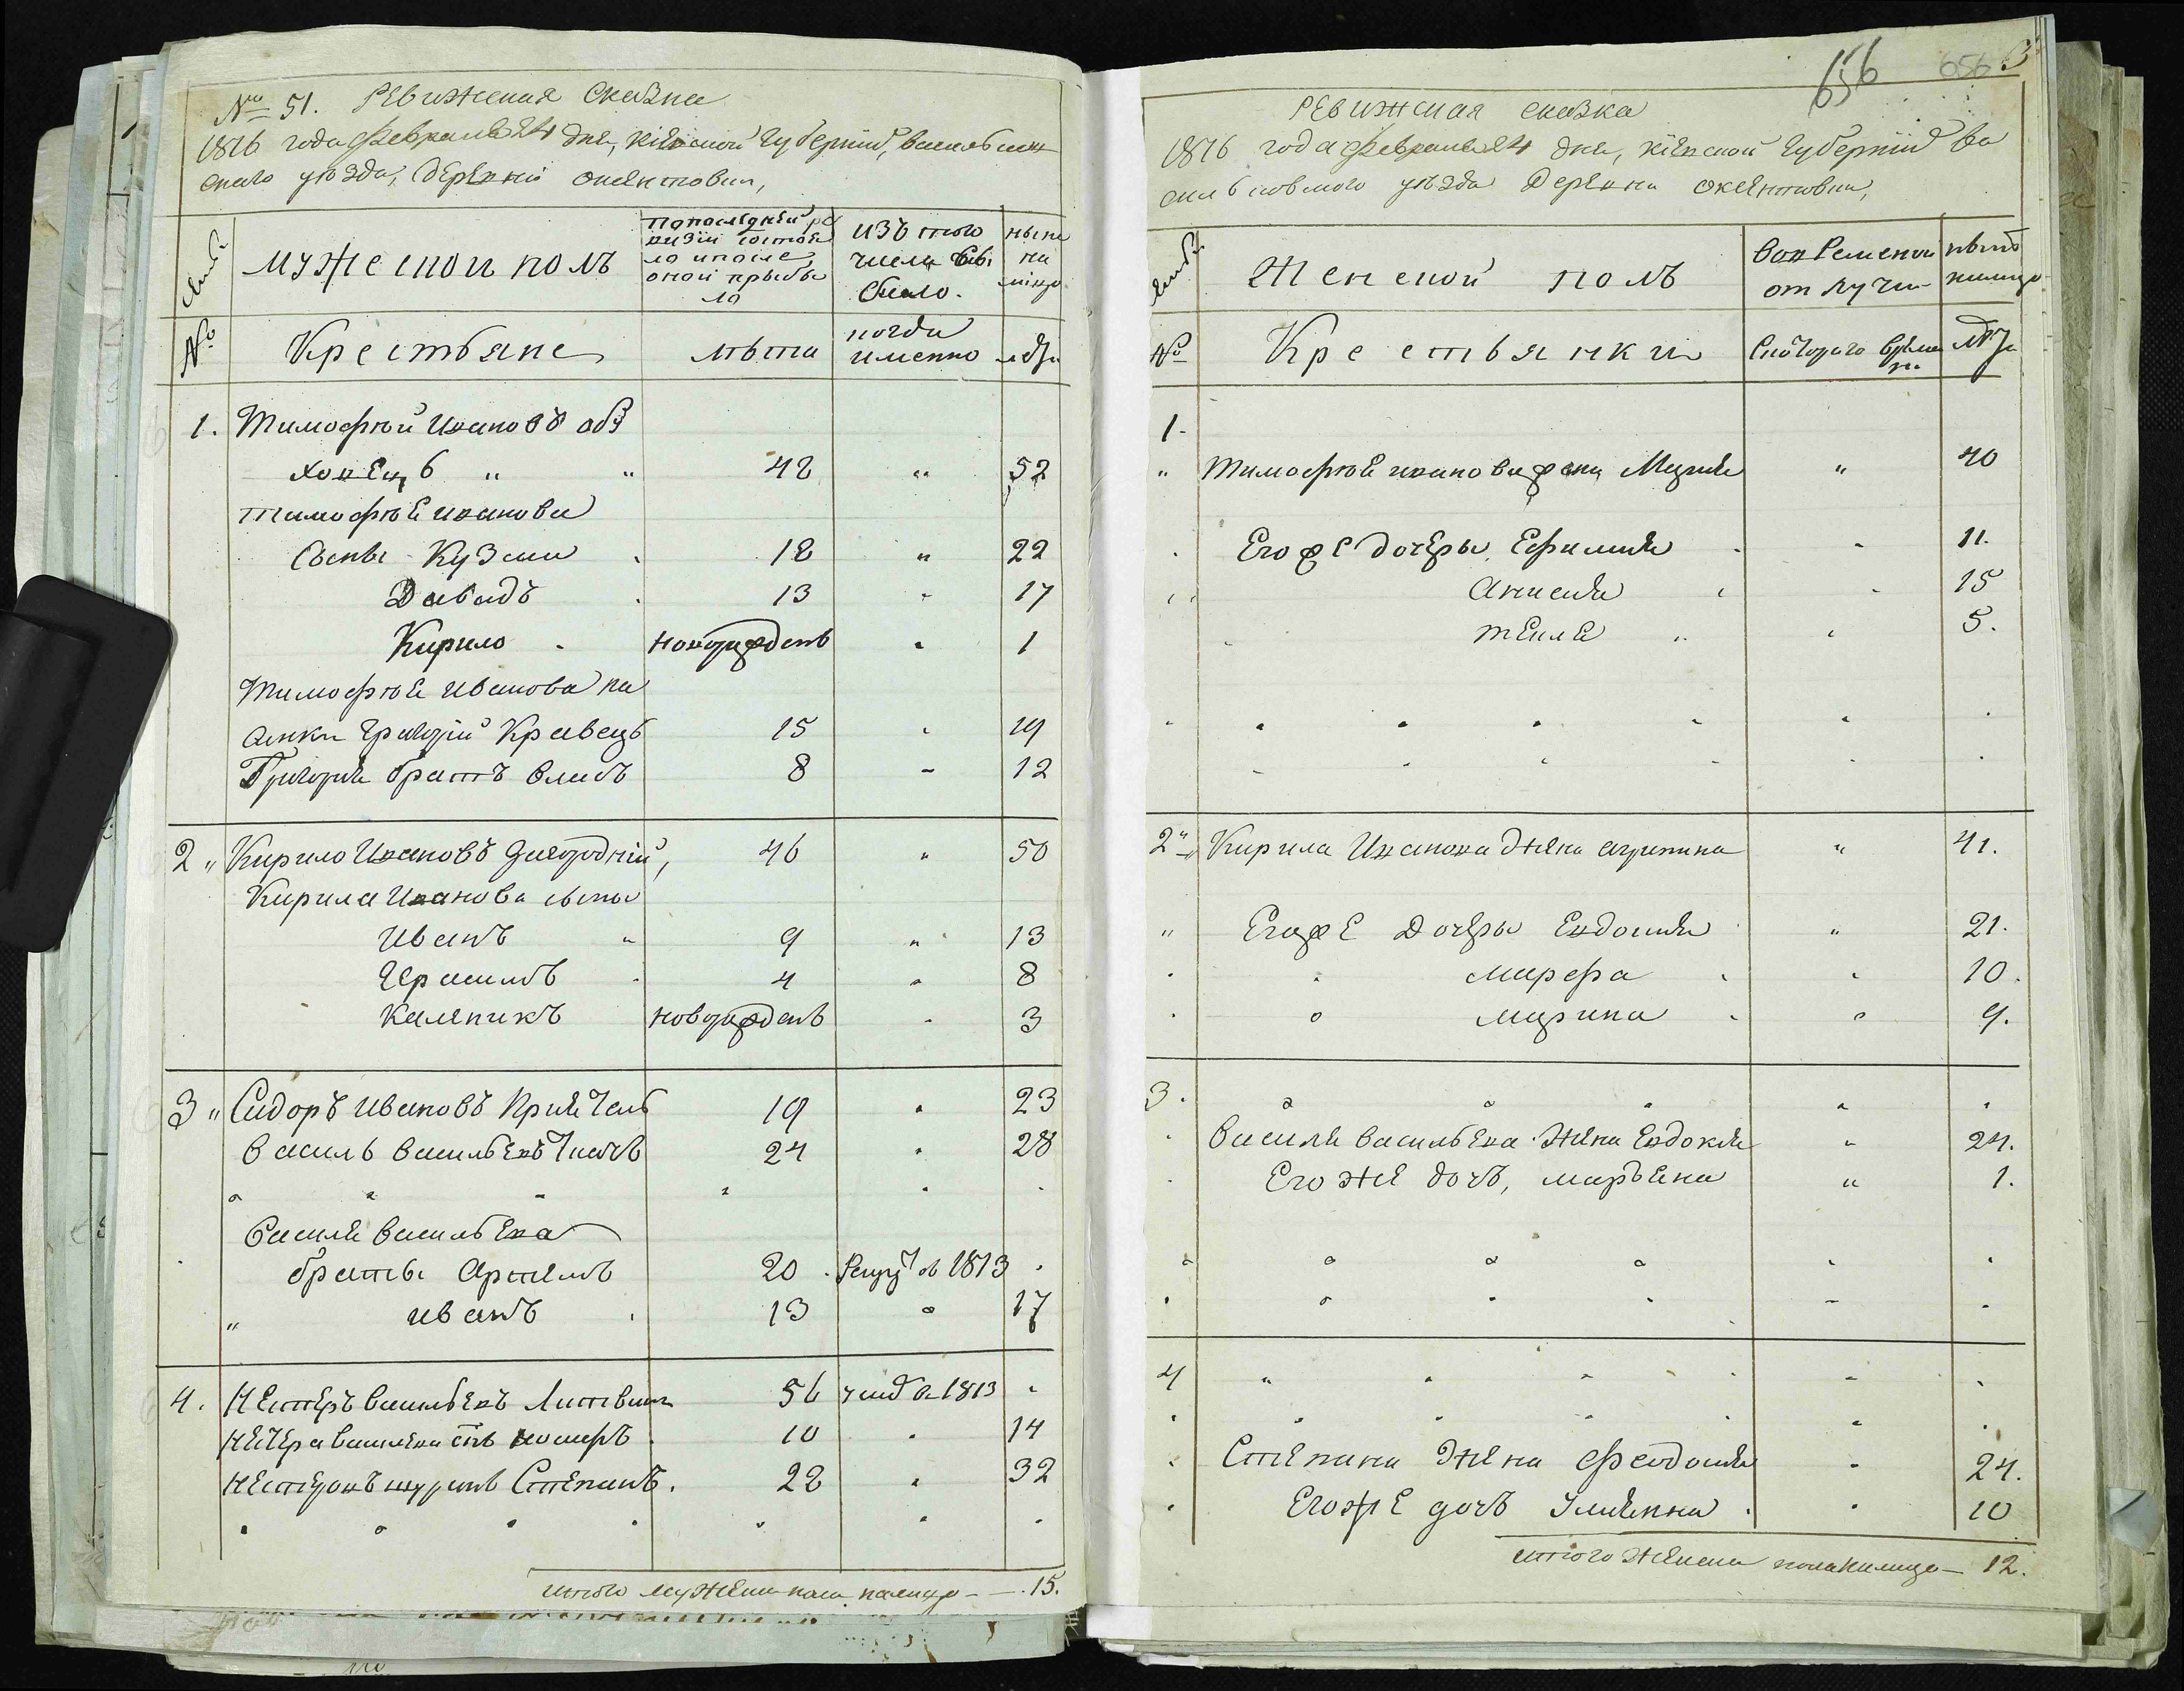 № 51. Ревижская Сказка
1816 года февраля 24 дня, Кіевской Губерніи, васильков
скаго уѣзда, деревни
семьи
мужеской полъ
по последней ре
визіи состоя
ло и после
оной прыбы
ло
изъ того
числа выбы
было.
ныне
на
лицо
№
Крестьяне
лѣта
когда
именно
лѣта
1. Тимофей Ивановъ
42 " 52
Тимофѣя иванова
Сыны Кузма 18 " 22
Давидъ 13 " 17
Кирило новорожденъ " 1
Тимофѣя иванова па
сынки Григорій Кравецъ 15 " 19
Григорія братъ власъ 8 " 12
2 " Кирило Ивановъ Загородній, 46 " 50
Кирила Иванова сыны
Иванъ " 9 " 13
Герасимъ 4 " 8
Каленикъ новорожденъ " 3
3 " Сидоръ Ивановъ 19 " 23
Василь Васильевъ Ткачъ 24 " 28
Василя васильева
братьи Артемъ 20 . Рекрутъ въ 1813
" иванъ 13 " 17
4. Нестеръ васильевъ Литвинъ 56 в 1813
10 14
шуринъ Степанъ. 28 32
итого мужеска пола налицо — 15.
656 656
Ревижская сказка
1816 года февраля 24 дня, кіевской Губерніи ва
сильковского уѣзда Деревни
семьи
Женской полъ
во временной
отлучке
ныне
налицо
№
Крестьянки
Скоторого времени
лѣта
1.
" Тимофѣя иванова жена Мария " 40
Его же дочеры Ефимия 11.
Анисия 15
текля 5.
2 " Кирила Иванова жена " 41.
" Его же Дочеры Евдокия " 21.
марфа 10.
марина 9.
3.
Василя васильева жена Евдокия " 24.
Его же дочь, марьяна " 1.
4 "
Степана жена Феодосия 24.
Его же дочь Улияна 10
итого женска пола налицо — 12.